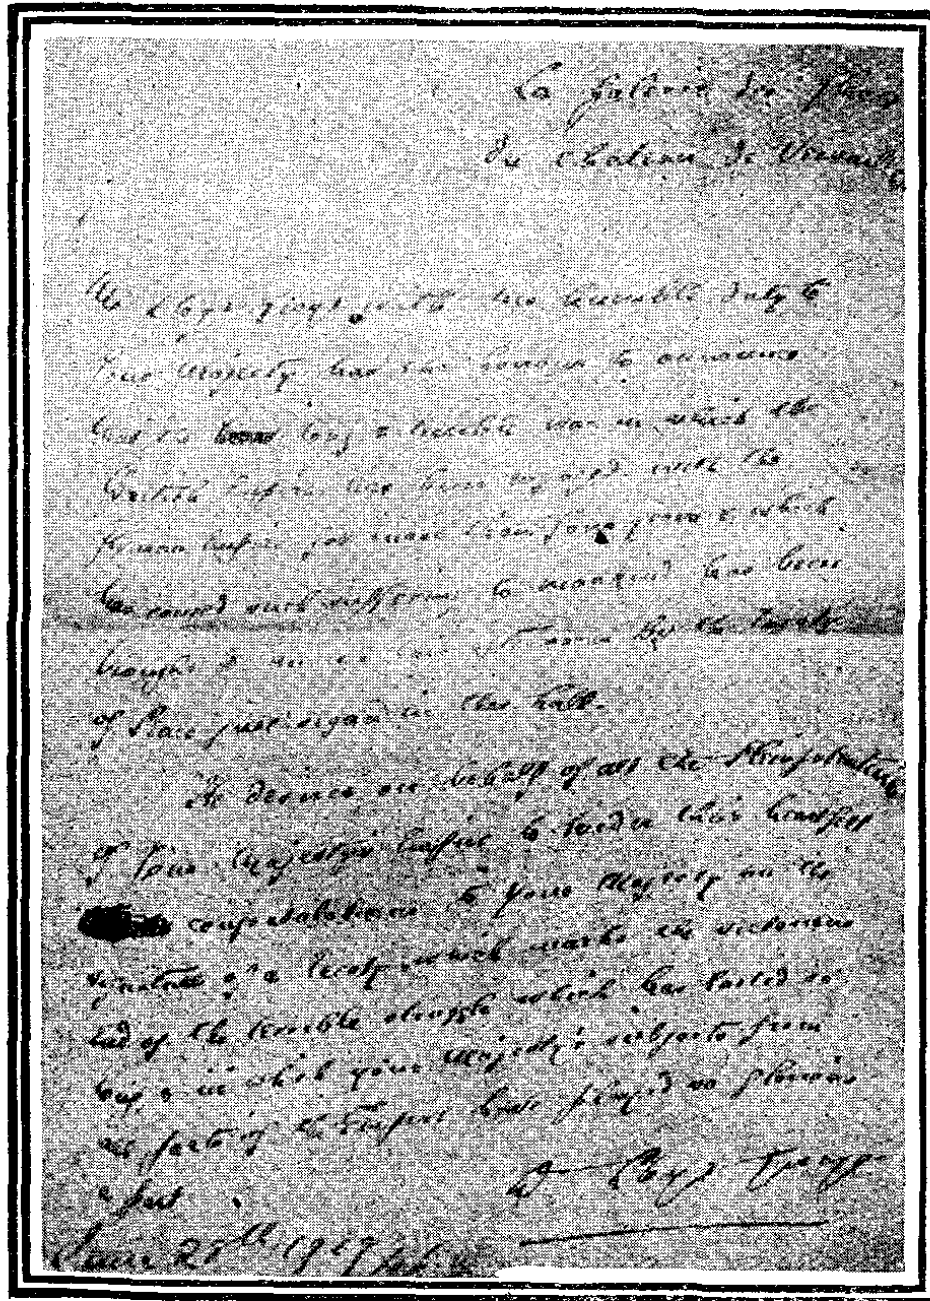 La Galerie des Glaces
du Chateau de Versailles
Mr Lloyd George with his humble duty to
Your Majesty has the honour to announce
that the long & terrible war in which the
British Empire has been engaged with the
German Empire for more than four years & which
has caused such suffering to mankind has been
brought to an end this afternoon by the Treaty
of Peace just signed in this hall.
He desires on behalf of all the Plenipotentiaries
of Your Majesty's Empire to tender their heartfelt
congratulations to your Majesty on the
signature of a Treaty which marks the victorious
end of the terrible struggle which has lasted so
long & in which your Majesty's subjects from
all parts of the Empire have played so glorious
a part.
D Lloyd George
June 28th 1919